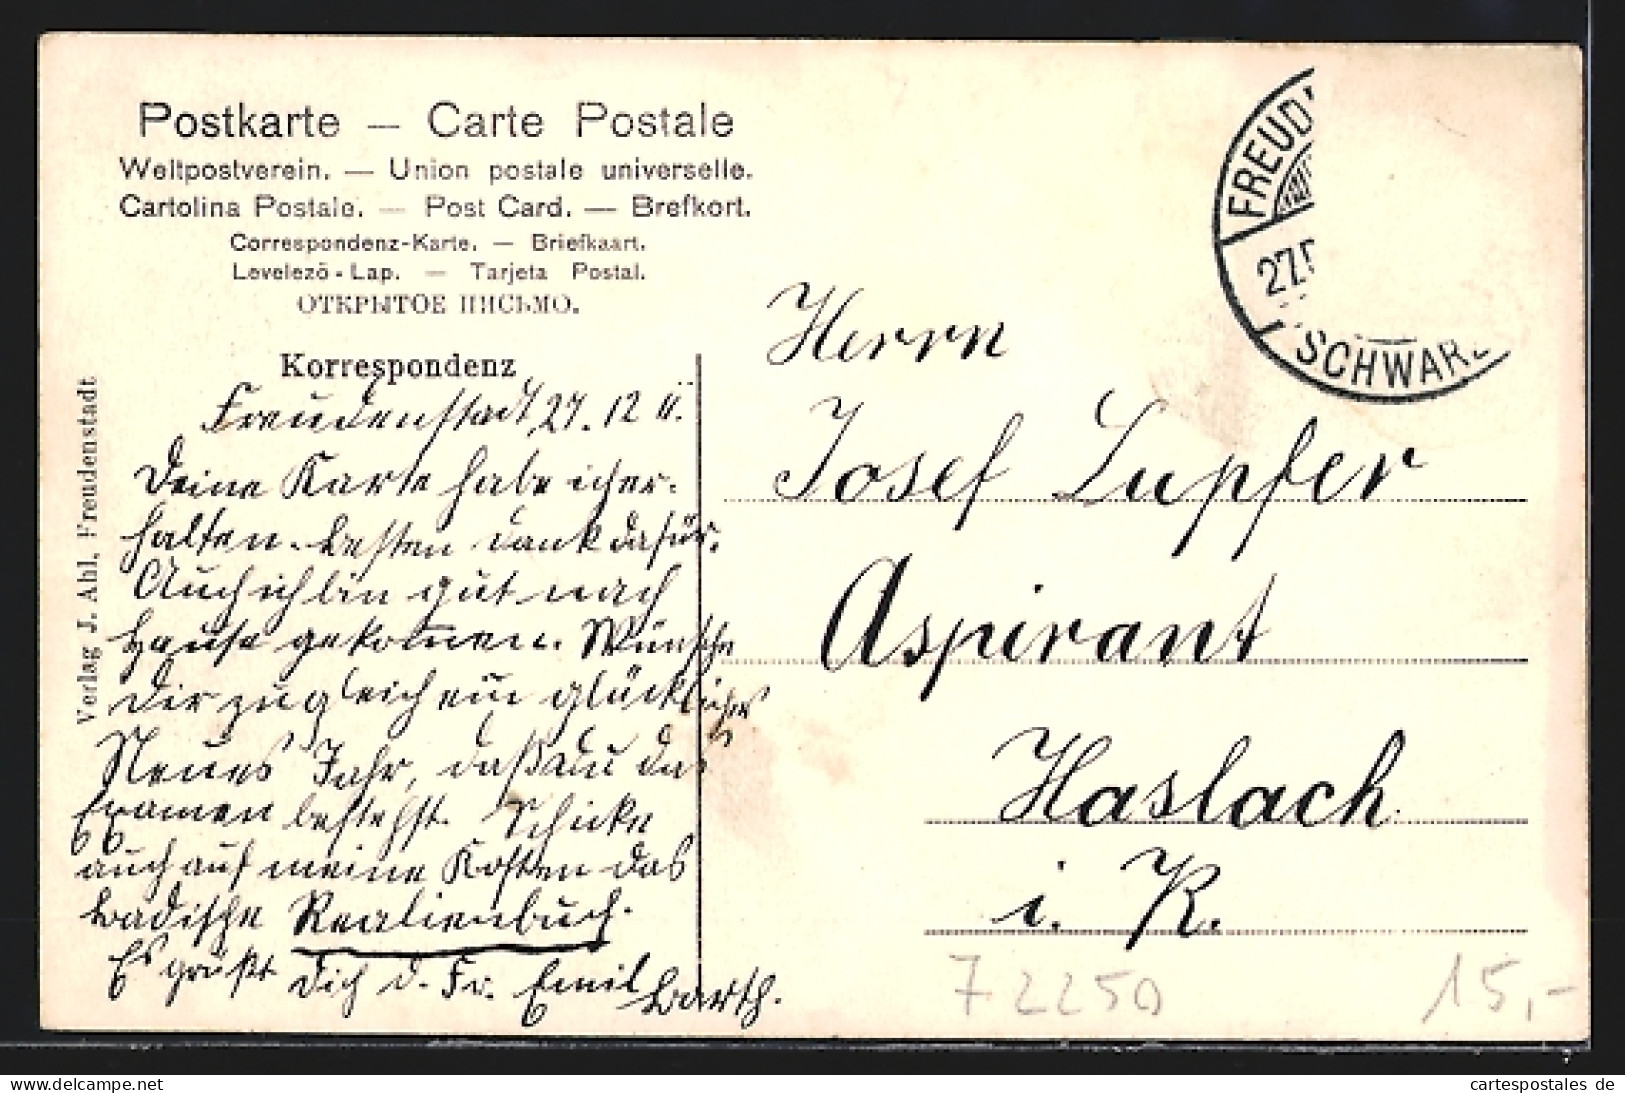 Postkarte — Carte Postale
Weltpostverein. — Union postale universelle.
Cartolina Postale. — Post Card. — Brefkort.
Correspondenz-Karte. — Briefkaart.
Levelezö-Lap. — Tarjeta Postal.
ОТКРЫТОЕ ПИСЬМО.
Korrespondenz
Verlag J. Ahl, Freudenstadt
Freudenstadt, 27. 12 11.
Deine Karte habe ich er-
halten. besten Dank dafür.
Auch ich bin gut nach
Hause gekom̅en. Wünsche
Dir zugleich ein glückliches
Neues Jahr, daß du das
Examen bestehst. Schicke
auch auf meine Kosten das
badische Realienbuch.
Es grüßt Dich d. Fr. Emil Barth.
FREUD
27.
SCHWARZ
Herrn
Josef Lupfer
Aspirant
Haslach
i. K.
72250
15,-
delcampe.net
cartespostales de